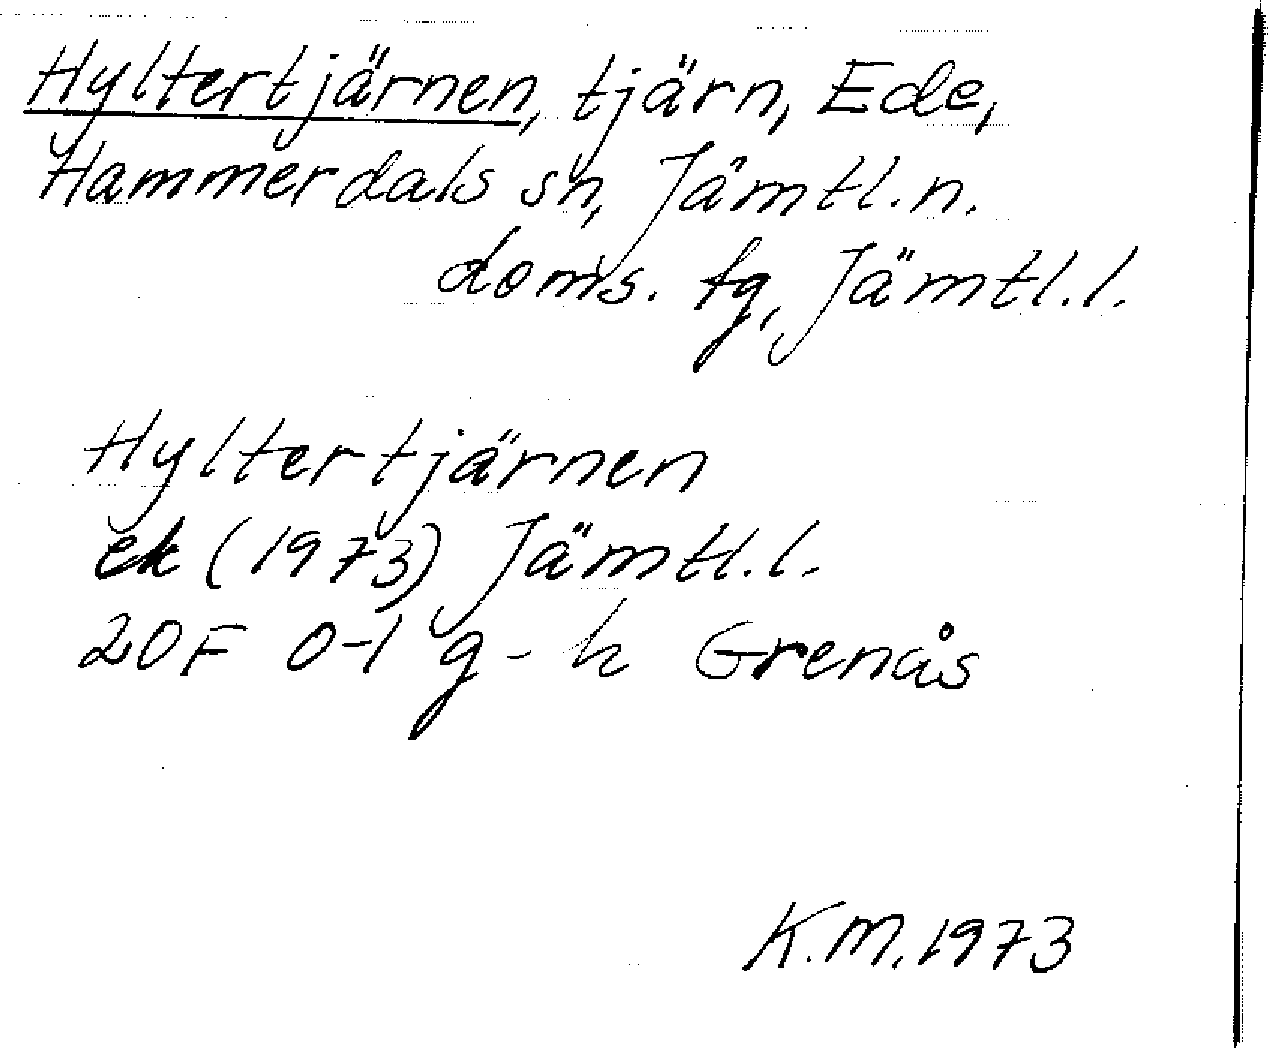 Hyltertjärnen, tjärn, Ede,
Hammerdals sn, Jämtl.n.
doms. fg, Jämtl.l.
Hyltertjärnen
ek (1973) Jämtl.l.
20F 0-1 g-h Grenås
K.M. 1973